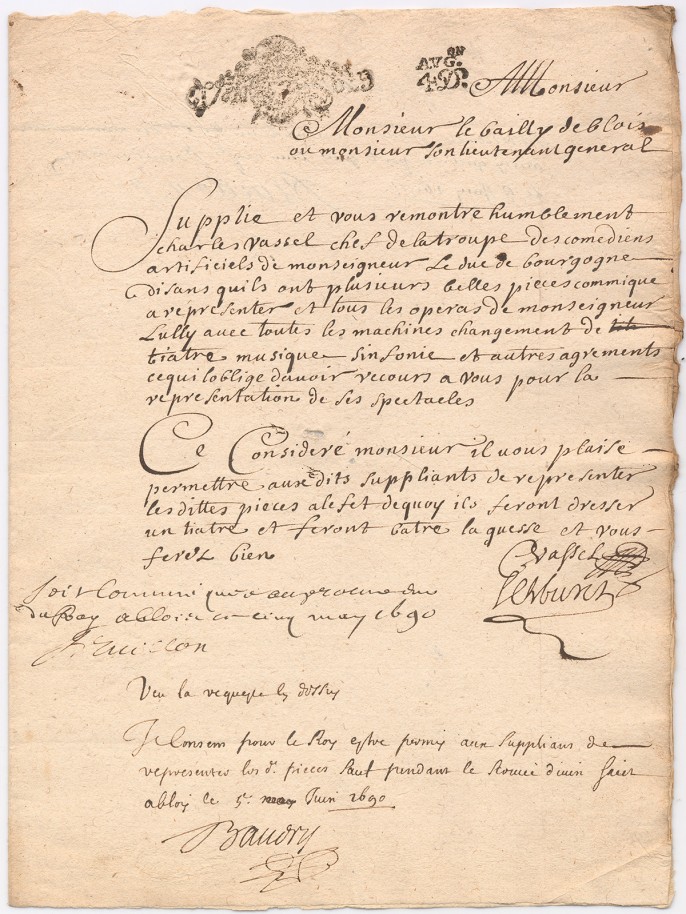 AVG.ON
4 D.
A Monsieur
Monsieur le bailly de blois
ou monsieur son lieutenant general
Supplie et vous remontre humblement
charles vassel chef de la troupe des comediens
artificiels de monseigneur Le duc de bourgogne
disans quils ont plusieurs belles pieces commique
a representer et tous les operas de monseigneur
Lully avec toutes les machines changement de
tiatre musique sinfonie et autres agrements
ce qui loblige davoir recours a vous pour la
representation de ses spectacles
Ce Consideré monsieur il vous plaise
permettre ausdits suppliants de representer
les dittes pieces a lefet dequoy ils feront dresser
un tiatre et feront batre la quesse et vous
ferez bien
C vassel
Soit Communiqué au procureur
du Roy a blois ce cinq may 1690
Veu la requeste cy dessus
Je Consens pour le Roy estre permis aux supplians de
representer les d. pieces sauf pendant le service divin fait
a blois le 5e may Juin 1690
Baudry